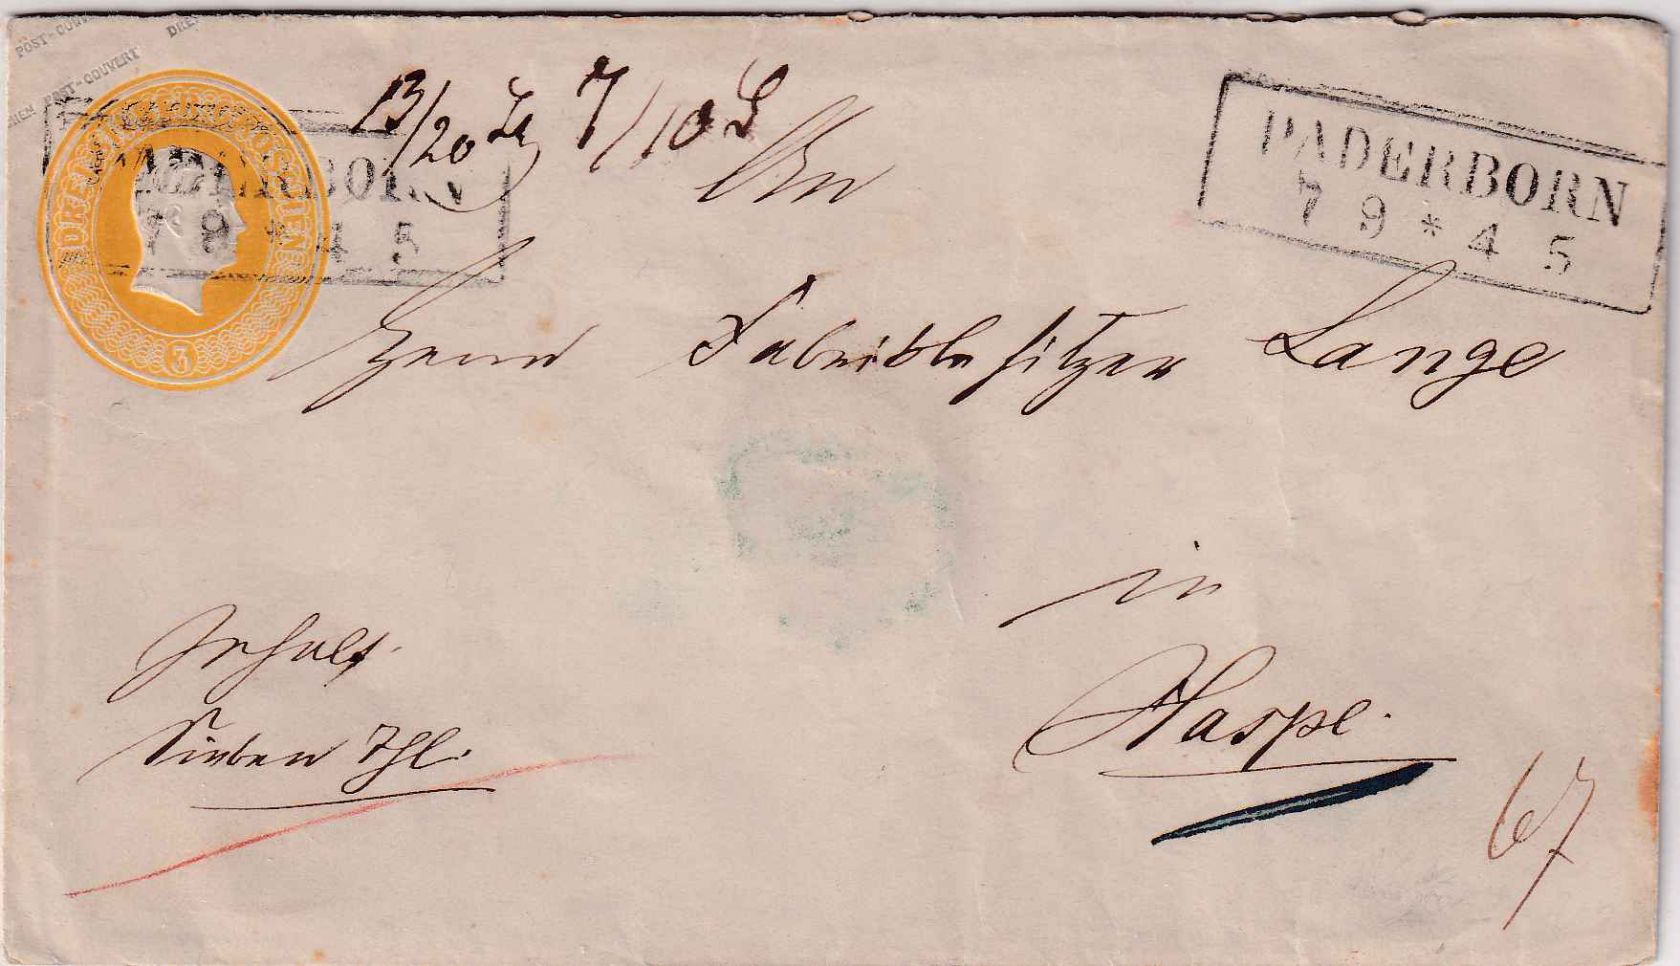 POST-COUVERT DREI
POST-COUVERT
PADERBORN
7 9 * 4 5
DREI SILBERGROSCHEN
3
13/20 7/10 L
PADERBORN
7 9 * 4 5
An
Herrn Fabrikbesitzer Lange
in
Haspe.
Inhalt
Sieben Thl.
67